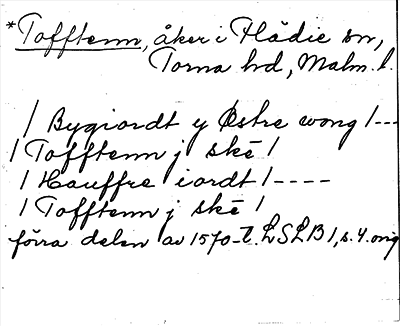 *Tofftenn, åker i Flädie sn,
Torna hd, Malm. l.
/ Bygiordt y Østre wong / ---
/ Tofftenn j skē /
/ Hauffre iordt / ----
/ Tofftenn j skē /
förra delen av 1570-t. LSLB 1, s. 4. orig